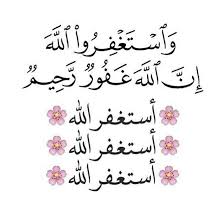 وَٱسْتَغْفِرُوا۟ ٱللَّهَ
إِنَّ ٱللَّهَ غَفُورٌ رَّحِيمٌ
🌸أستغفر الله🌸
🌸أستغفر الله🌸
🌸أستغفر الله🌸